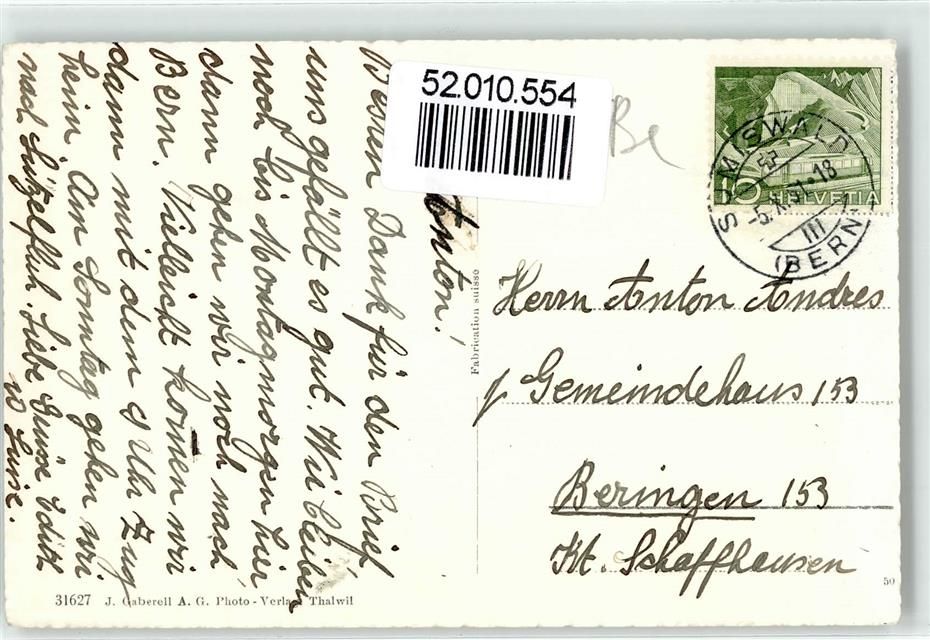 52.010.554
Be
Anton!
Besten Dank für den Brief
uns gefällt es gut. Wir bleiben
noch bis Montagmorgen hier
dann gehen wir noch nach
Bern. Villeicht komen wir
dann mit dem 9 Uhr Zug
heim. Am Sonntag gehen wir
nach Lützelflüh. Liebe Grüsse Edith
Luise.
31627 J. Gaberell A. G. Photo - Verlag Thalwil
Fabrication suisse
10 HELVETIA
SUMISWALD
-5.X.51-18
III
(BERN)
Herrn Anton Andres
Gemeindehaus 153
Beringen 153
Kt. Schaffhausen
50